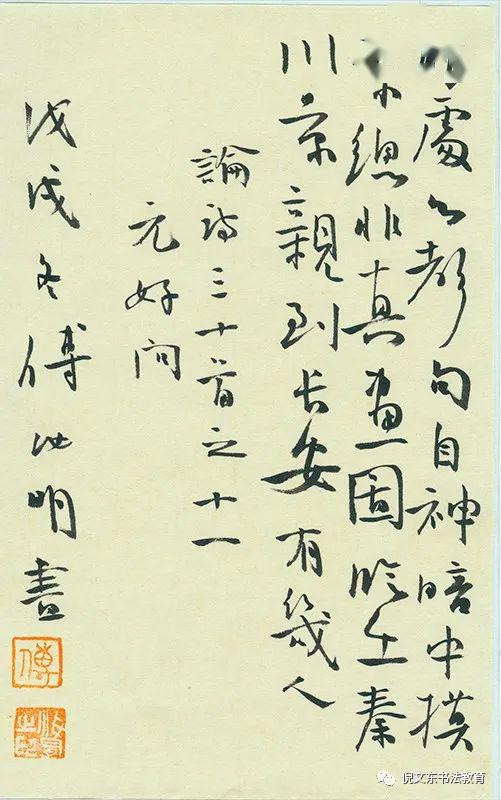 處心句自神暗中摸
總非真畫圖臨出秦
川景親到長安有幾人
論詩三十首之十一
元好問
戊戌冬傅如明書
傅
倪文东书法教育